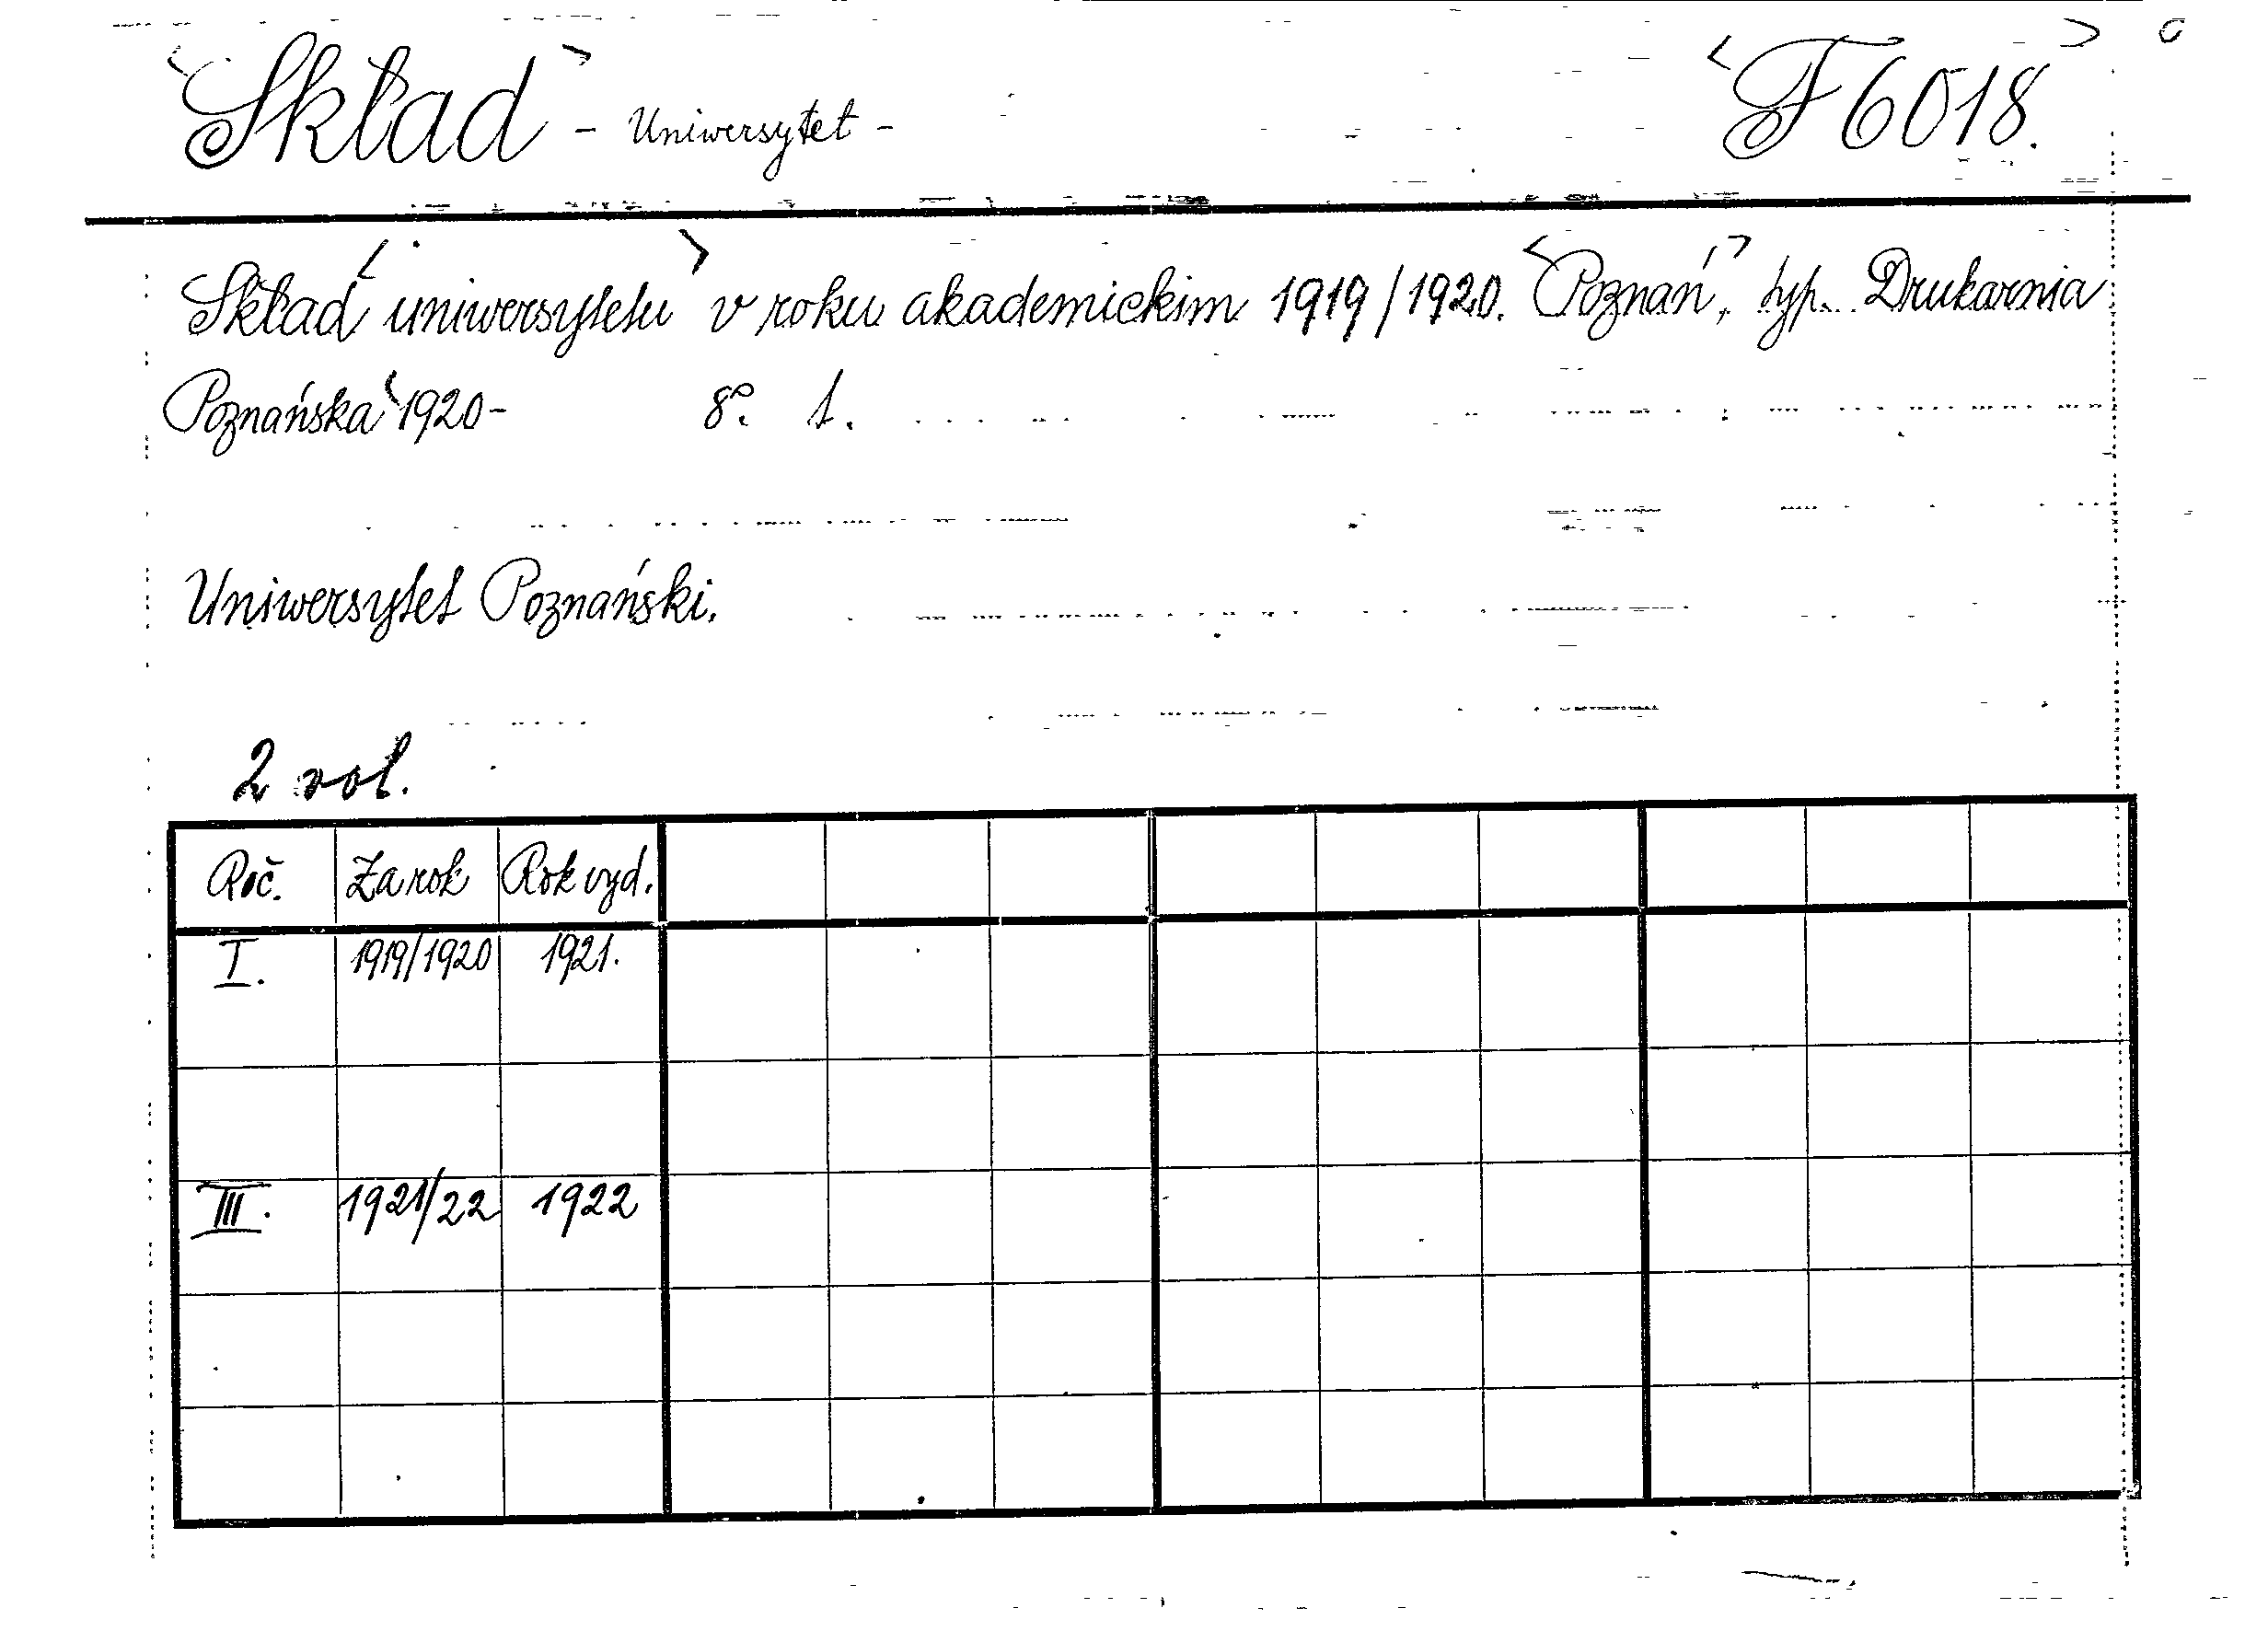 Skład - Uniwersytet - F 6018.
Skład uniwersytetu v roku akademickim 1919/1920. Poznań, typ. Drukarnia
Poznańska 1920- 8°. t.
Uniwersytet Poznański.
2 vol.
Roč. Za rok Rok vyd.
I. 1919/1920 1921.
III. 1921/22 1922